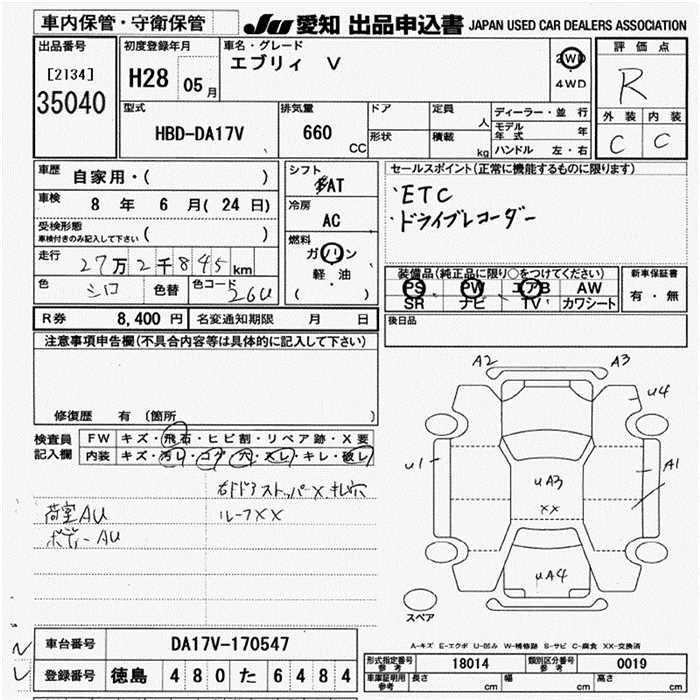 車内保管・守衛保管
JU 愛知 出品申込書 JAPAN USED CAR DEALERS ASSOCIATION
出品番号
[2134]
35040
初度登録年月
H28 05月
車名・グレード
エブリィ V
2WD
4WD
評価点
R
外装 内装
C C
型式
HBD-DA17V
排気量
660 CC
ドア
形状
定員 人
積載 kg
ディーラー・並行
モデル年式 年
ハンドル 左・右
車歴 自家用・( )
車検 8年 6月(24日)
受検形態
車検付きのみ記入して下さい ( )
走行 27万2千845km
色 シロ 色替 色コード 26U
シフト
AT
冷房
AC
燃料
ガソリン
軽・油
( )
セールスポイント(正常に機能するものに限ります)
・ETC
・ドライブレコーダー
装備品(純正品に限り○をつけてください)
PS PW エアB AW
SR ナビ TV カワシート
新車保証書
有・無
後日品
R券 8,400円 名変通知期限 月 日
注意事項申告欄(不具合内容等は具体的に記入して下さい)
修復歴 有 (箇所 )
検査員記入欄
FW キズ・飛石・ヒビ割・リペア跡・X要
内装 キズ・汚レ・コゲ・穴・スレ・キレ・破レ
右ドアストッパーX.キレ穴
荷室AU ルーフXX
ボディーAU
A2 A3
U4
U1 A1
UA3
XX
UA4
スペア
A-キズ E-エクボ U-凹み W-補修跡 S-サビ C-腐食 XX-交換済
車台番号 DA17V-170547
登録番号 徳島 480 た 6484
型式指定番号 参考 18014 類別区分番号 参考 0019
車庫証明用 参考 長さ cm 幅 cm 高さ cm